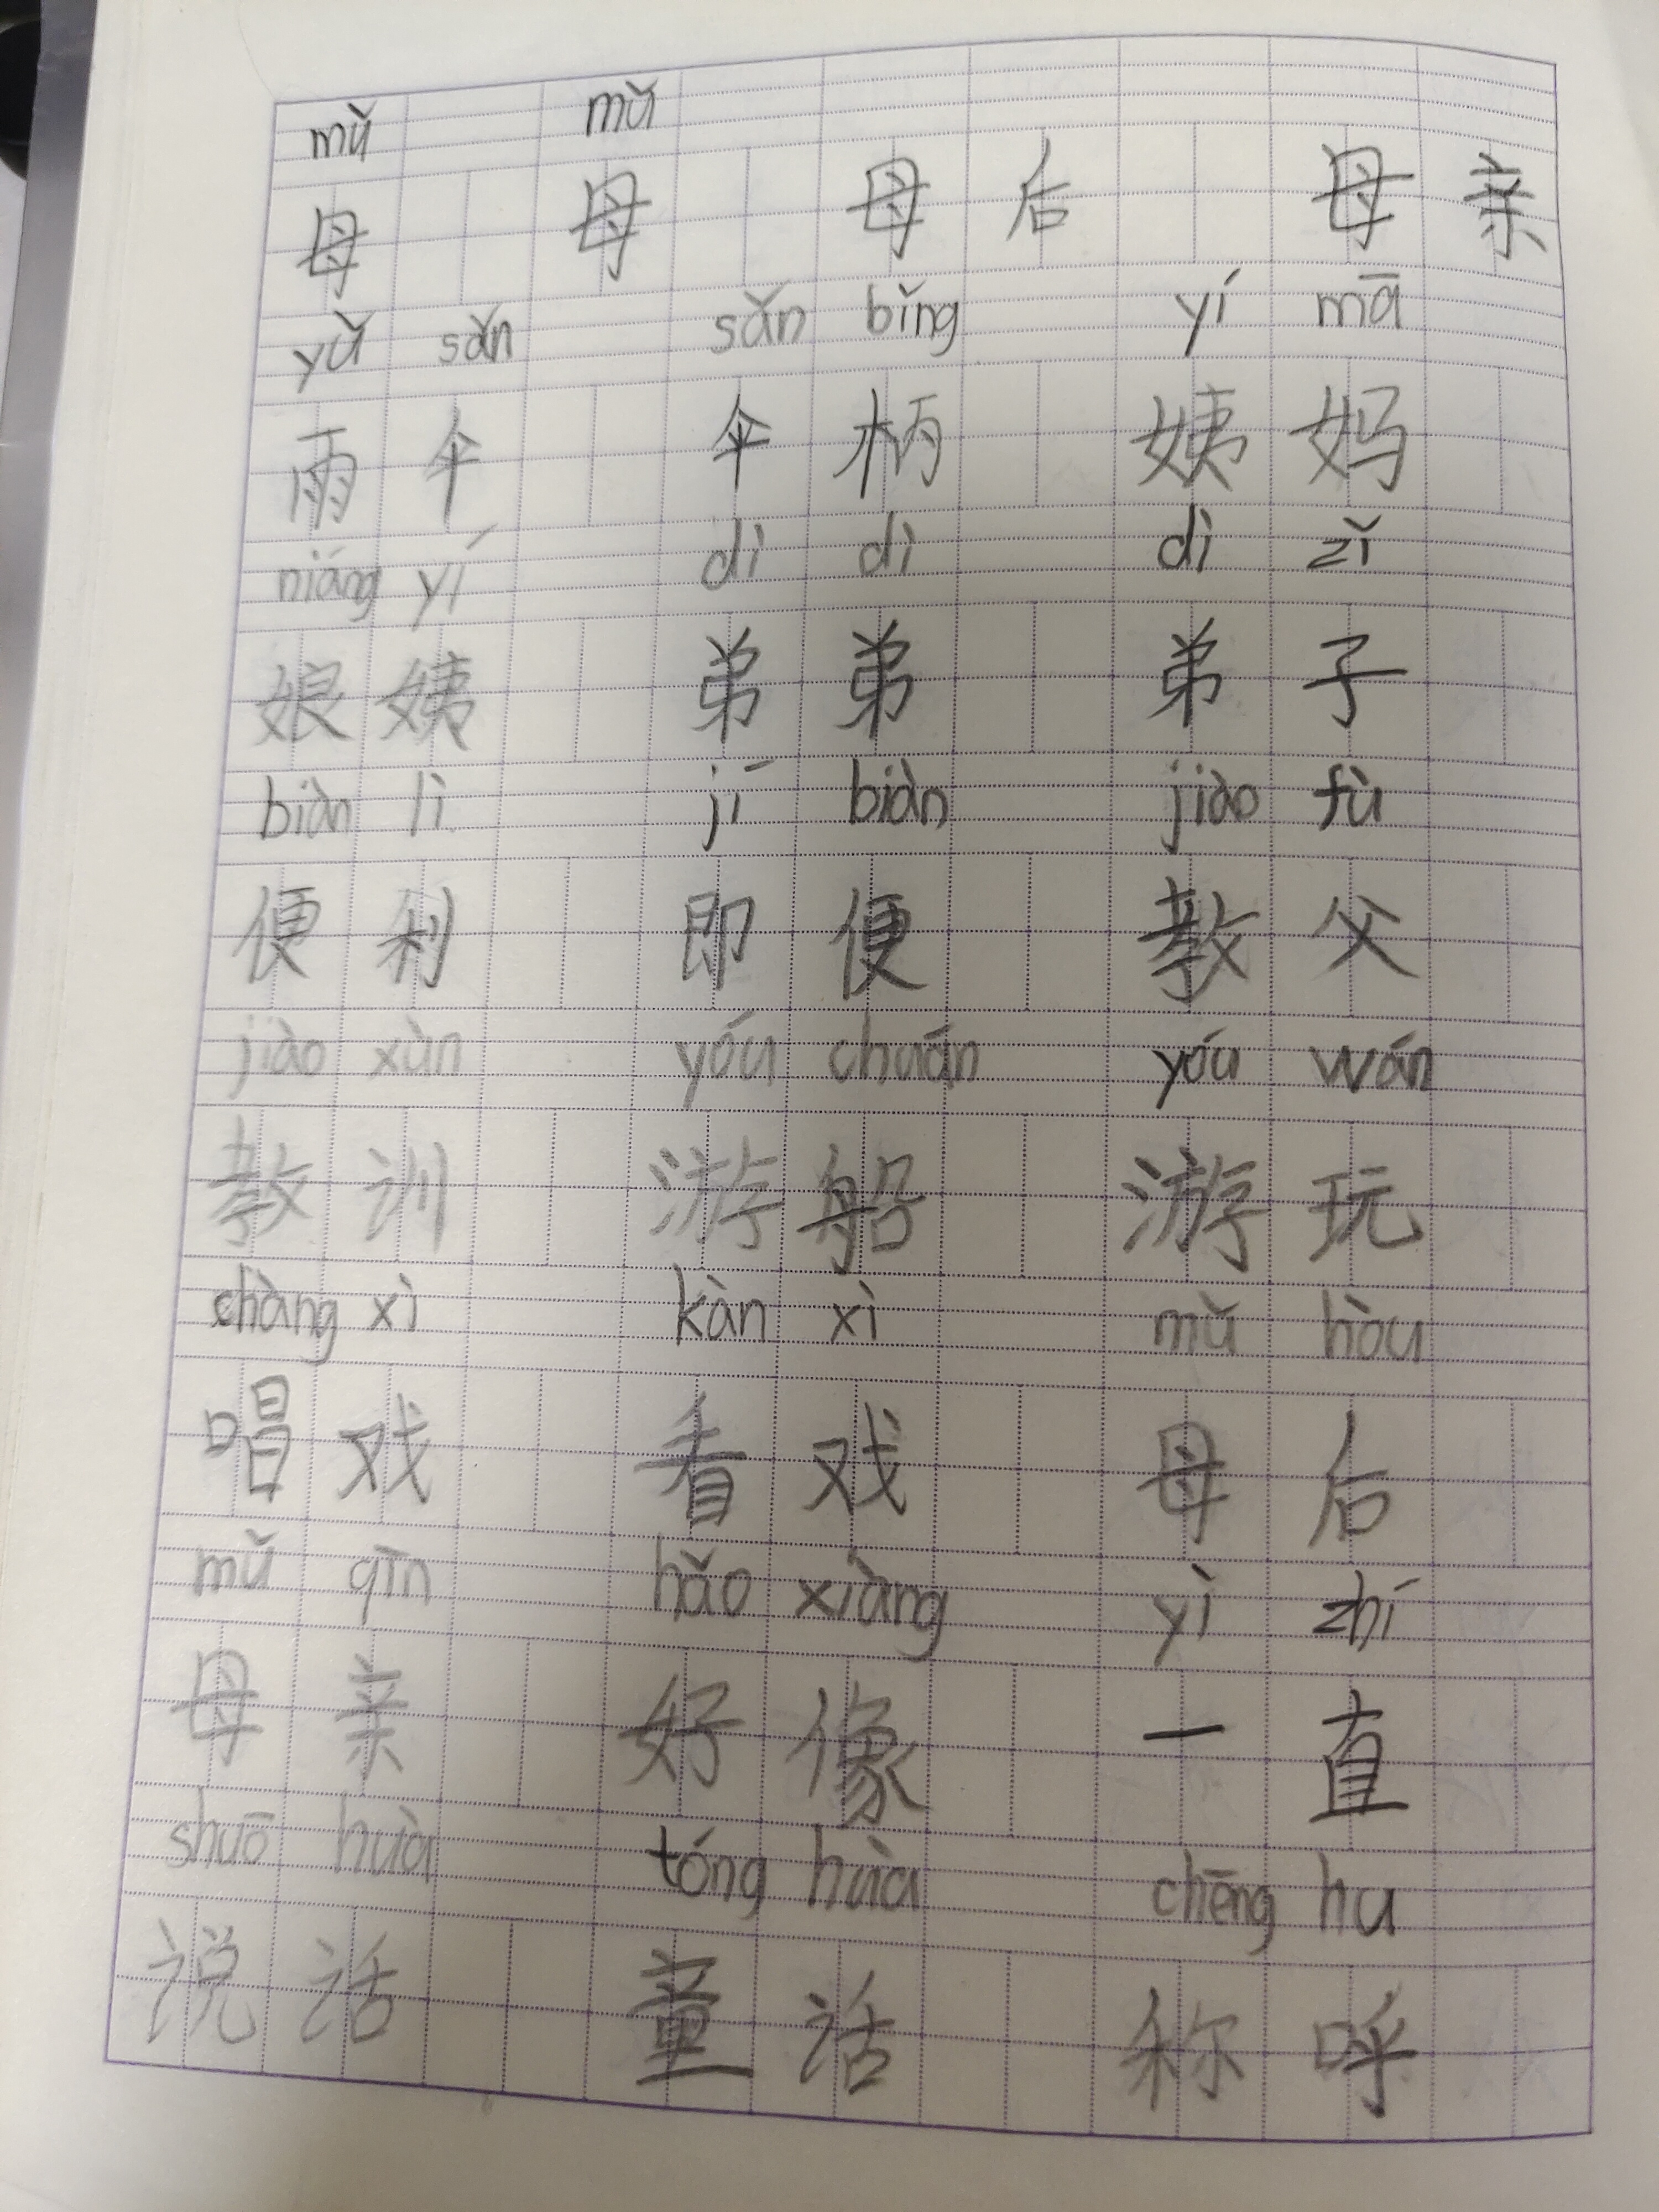 mǔ mǔ
母 母 母后 母亲
yǔ sǎn sǎn bǐng yí mā
雨伞 伞柄 姨妈
niáng yí dì dì dì zǐ
娘姨 弟弟 弟子
biàn lì jí biàn jiào fù
便利 即便 教父
jiào xùn yóu chuán yóu wán
教训 游船 游玩
chàng xì kàn xì mǔ hòu
唱戏 看戏 母后
mǔ qīn hǎo xiàng yì zhí
母亲 好像 一直
shuō huà tóng huà chēng hu
说话 童话 称呼